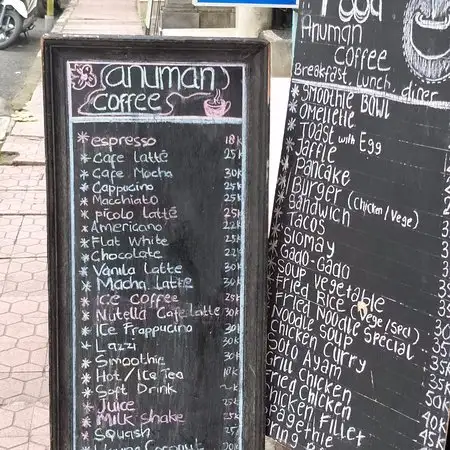 anuman
coffee
* espresso 18k
* Cafe Latte 25k
* Cafe Mocha 30k
* Cappucino 25k
* Macchiato 25k
* Picolo latte 25k
* Americano 22k
* Flat White 25k
* Chocolate 22k
* Vanila Latte 30k
* Macha Latte 30k
* ICE COFFEE 25k
* Nutella Cafe Latte 30k
* Ice Frappucino 30k
* Lazzi 30k
* Smoothie 30k
* Hot/Ice Tea 18k
* Soft Drink
* Juice 25k
* Milk Shake 25k
* Squash 25k
Coconut 20k
Food
Anuman
Coffee
Breakfast, lunch, diner
* Smoothie Bowl
* Omellete
* Toast with Egg
* Jaffle
* Pancake
* Burger (Chicken/Vege)
* Sandwich
* Tacos
* Siomay
* Gado-Gado
* Soup Vegetable
* Fried Rice (Vege/Spcl)
* Fried Noodle Special
* Noodle Soup
* Chicken Curry
Soto Ayam
Grill Chicken 50k
Fried Chicken 40k
Chicken Fillet 45k
Spagethie